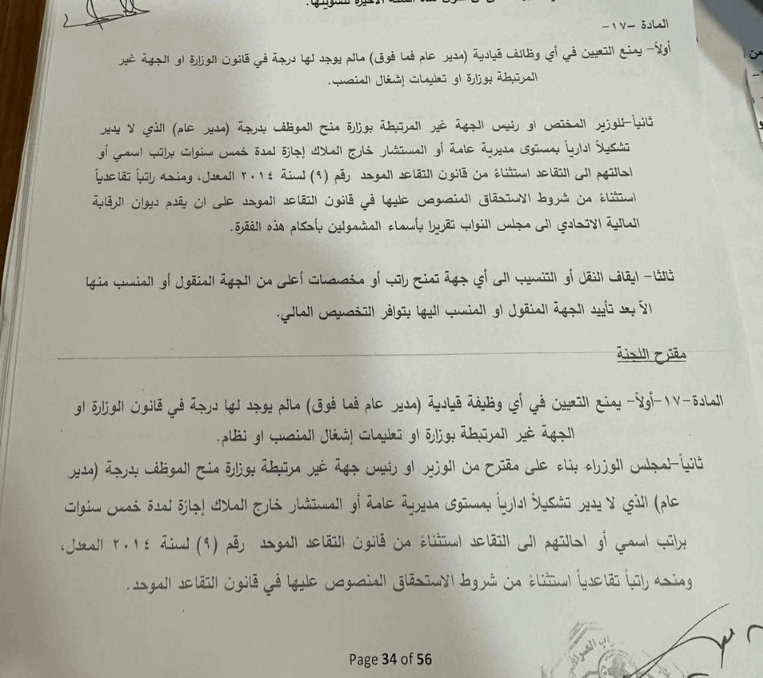 المادة -١٧-
أولاً- يمنع التعيين في أي وظائف قيادية (مدير عام فما فوق) مالم يوجد لها درجة في قانون الوزارة او الجهة غير
المرتبطة بوزارة او تعليمات إشغال المنصب.
ثانياً-للوزير المختص او رئيس الجهة غير المرتبطة بوزارة منح الموظف بدرجة (مدير عام) الذي لا يدير
تشكيلاً ادارياً بمستوى مديرية عامة أو المستشار خارج الملاك إجازة لمدة خمس سنوات براتب اسمي أو
احالتهم الى التقاعد استثناءً من قانون التقاعد الموحد رقم (٩) لسنة ٢٠١٤ المعدل، ومنحه راتباً تقاعدياً
استثناءً من شروط الاستحقاق المنصوص عليها في قانون التقاعد الموحد على ان يقدم ديوان الرقابة
المالية الاتحادي الى مجلس النواب تقريرا بأسماء المشمولين بأحكام هذه الفقرة.
ثالثا- ايقاف النقل أو التنسيب الى أي جهة تمنح راتب أو مخصصات أعلى من الجهة المنقول أو المنسب منها
الآ بعد تأييد الجهة المنقول او المنسب اليها بتوافر التخصيص المالي.
مقترح اللجنة
المادة-١٧-أولاً- يمنع التعيين في أي وظيفة قيادية (مدير عام فما فوق) مالم يوجد لها درجة في قانون الوزارة او
الجهة غير المرتبطة بوزارة او تعليمات إشغال المنصب او نظام.
ثانياً-لمجلس الوزراء بناء على مقترح من الوزير او رئيس جهة غير مرتبطة بوزارة منح الموظف بدرجة (مدير
عام) الذي لا يدير تشكيلاً ادارياً بمستوى مديرية عامة أو المستشار خارج الملاك إجازة لمدة خمس سنوات
براتب اسمي أو احالتهم الى التقاعد استثناءً من قانون التقاعد الموحد رقم (٩) لسنة ٢٠١٤ المعدل،
ومنحه راتباً تقاعدياً استثناءً من شروط الاستحقاق المنصوص عليها في قانون التقاعد الموحد.
Page 34 of 56